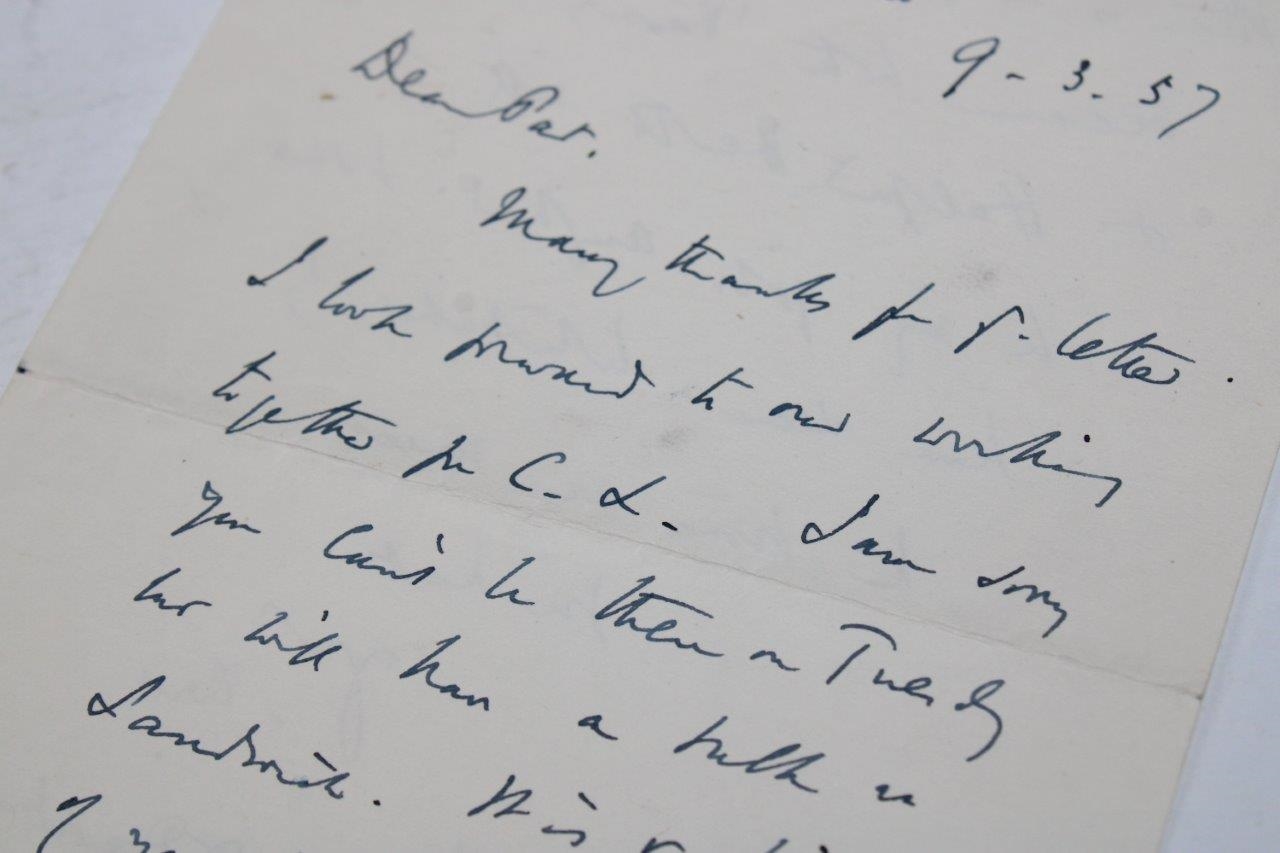 9-3.57
Dear Pat.
Many thanks for yr. letter.
I look forward to our working
together for C.L. I am sorry
you can't be there on Tuesday
but will have a talk at
Sandwich. It is